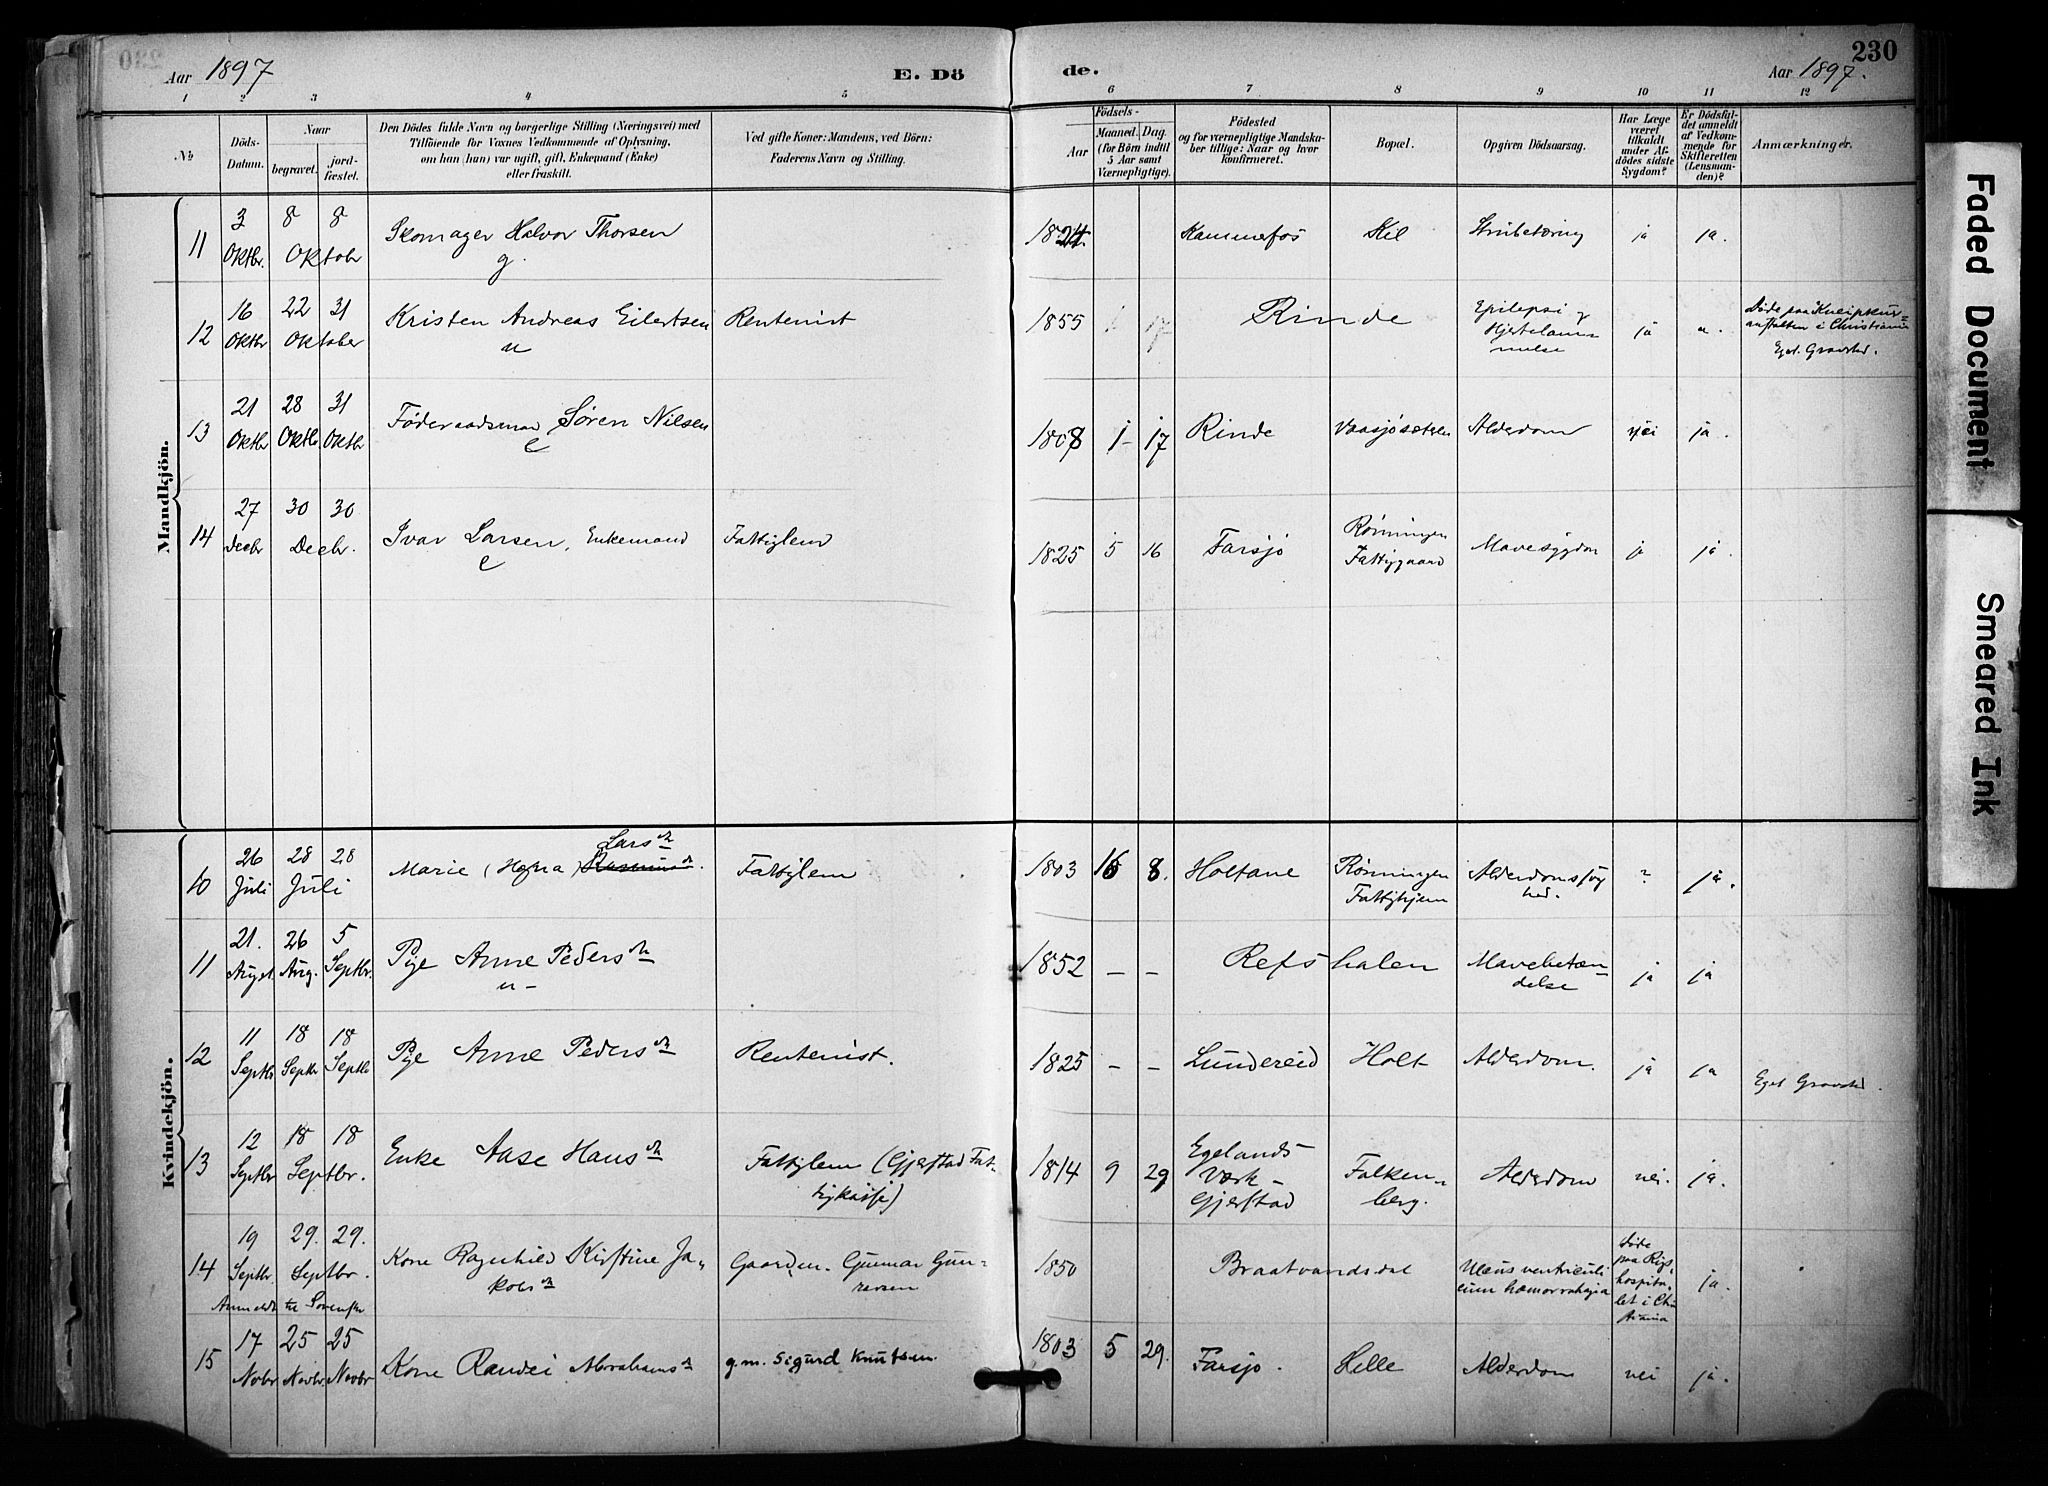 230
Aar 1897 E. Dö de. Aar 1897.
1 2 3 4 5 6 7 8 9 10 11 12
No
Döds-Datum.
Naar
begravet.
jord-fæstet.
Den Dödes fulde Navn og borgerlige Stilling (Næringsvei) med
Tilföiende for Voxnes Vedkommende af Oplysning,
om han (hun) var ugift, gift, Enkemand (Enke)
eller fraskilt.
Ved gifte Koner: Mandens, ved Börn:
Faderens Navn og Stilling.
Födsels-
Aar
Maaned. Dag.
(for Börn indtil
5 Aar samt
Værnepligtige).
Födested
og for værnepligtige Mandska-
ber tillige: Naar og hvor
konfirmeret.
Bopæl.
Opgiven Dödsaarsag.
Har Læge
været
tilkaldt
under Af-
dödes sidste
Sygdom?
Er Dödsfal-
det anmeldt
af Vedkom-
mende for
Skifteretten
(Lensman-
den)?
Anmærkninger.
Mandkjön.
11 3 Oktbr. 8 8 Oktobr Skomager Halvor Thorsen g. 1824. Kammefos Kil Strubetæring ja ja.
12 16 Oktbr 22 31 Oktober Kristen Andreas Eilertsen u Rentenist 1855 Rinde Epilepsi og Hjertelam-melse ja Döde paa Kneipkur-anstalten i Christiania Eget Gravsted.
13 21 Oktbr 28 Oktbr. 31 Oktbr Föderaadsmand Sören Nilsen e 1808 1 17 Rinde Vaasjösæteren Alderdom nei ja.
14 27 Decbr 30 30 Decbr. Ivar Larsen, Enkemand e Fattiglem 1825 5 16 Farsjö Rönningen Fattiggaard Mavesygdom ja ja.
Kvindekjön.
10 26 Juli 28 28 Juli Marie (Hefna) Larsdtr Fattiglem 1803 8. Holtane Rönningen Fattighjem Alderdomssvaghed. ? ja.
11 21. August 26 Aug. 5 Septbr. Pige Anne Pedersdtr u- 1852 - - Refshalen Mavebetæn-delse ja ja
12 11 Septbr 18 Septbr 18 Septbr Pige Anne Pedersdtr Rentenist. 1825 - - Lundereid Holt Alderdom. ja ja Eget Gravsted.
13 12 Septbr 18 18 Septbr. Enke Aase Hansdtr Fattiglem (Gjerstad Fat-tigkasse) 1814 9 29 Egelands Værk - Gjerstad Falken-berg. Alderdom nei. ja.
14 19 Septbr. 29. 29. Septbr. Anmeldt til Sorenskr Kone Ragnhild Kirstine Ja-kobsdtr Gaardm. Gunnar Gun-narsen 1850 Braatvandsdal Ulcus ventriculi cum hæmorrahagia Döde paa Rigs-hospita-let i Chri-stiania ja.
15 17 Novbr 25 Novbr. 25 Novbr Kone Randei Abrahamsdtr g.m. Sigurd Knutsen. 1803 5 29. Farsjö. Lille Alderdom nei ja.
Faded Document
Smeared Ink